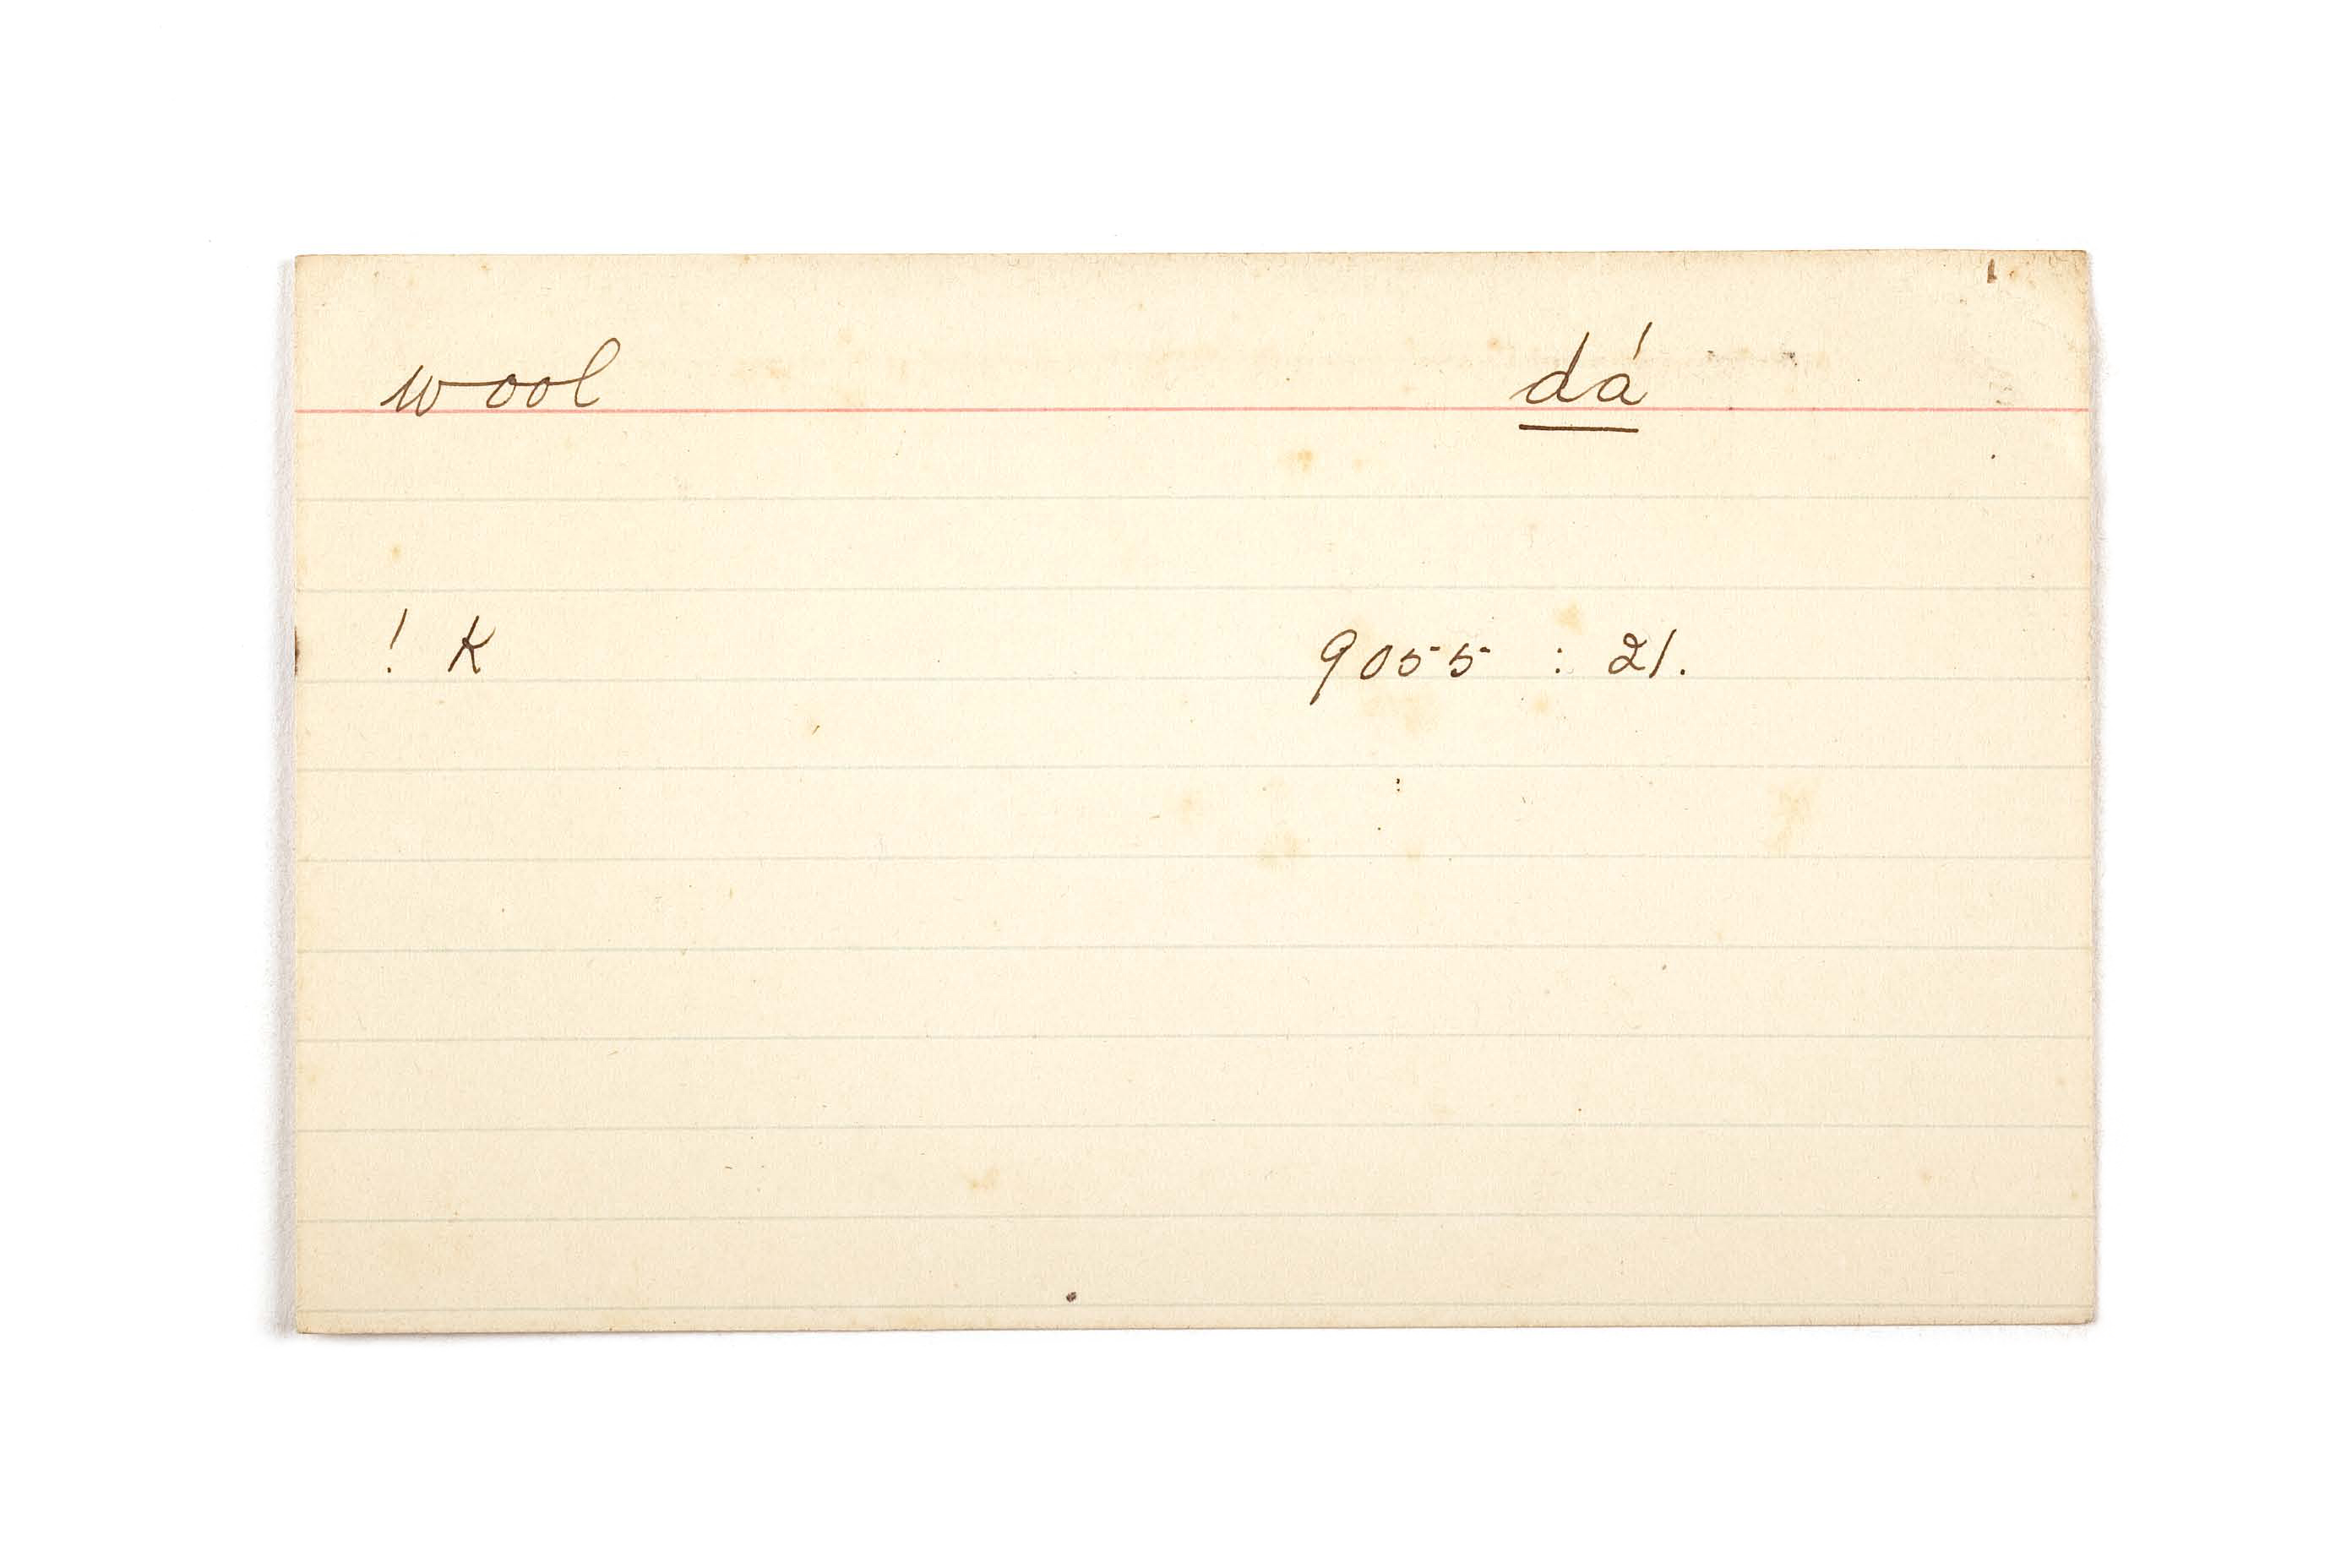 wool dá
! K 9055 : 21.